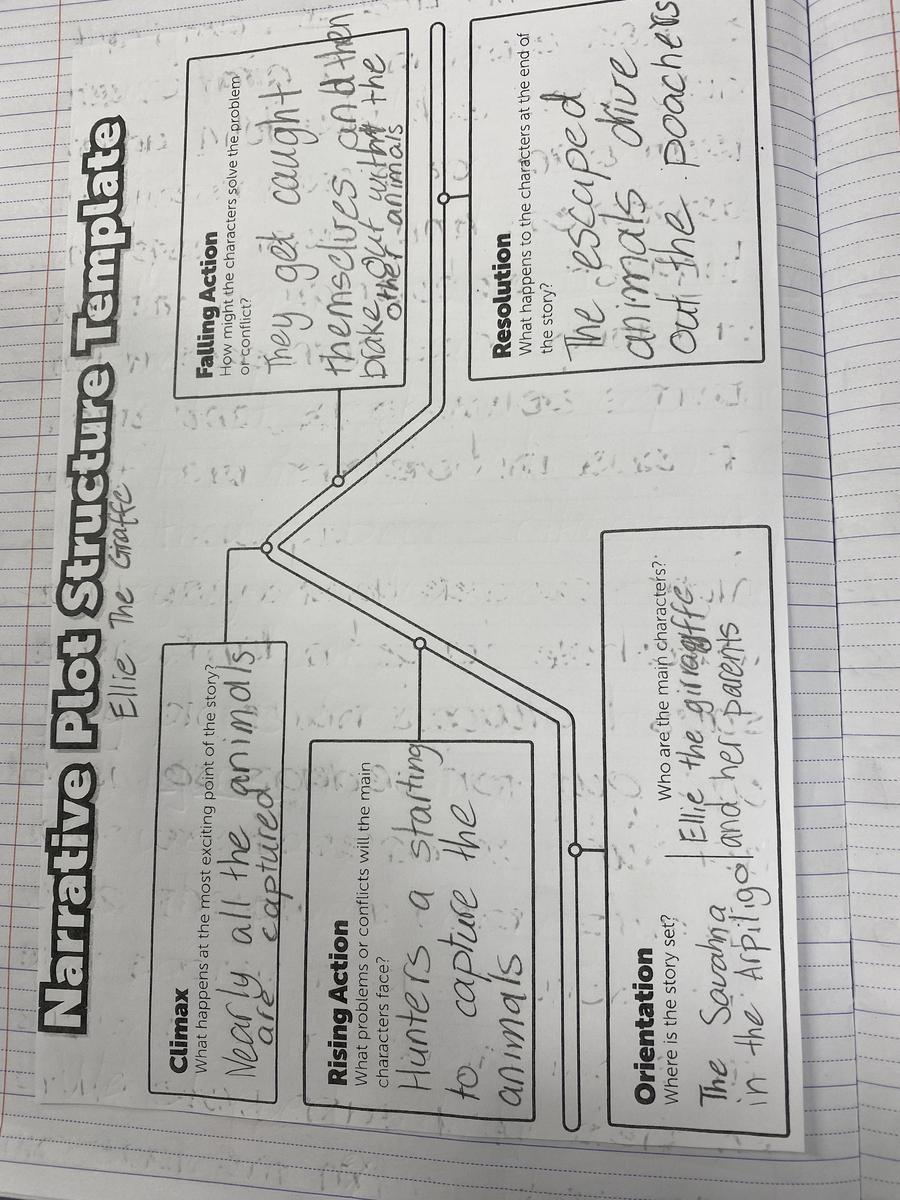 Narrative Plot Structure Template
Ellie The Giraffe
Climax
What happens at the most exciting point of the story?
Nearly all the animals
are captured
Falling Action
How might the characters solve the problem
or conflict?
They get caught
themselves and then
brake out with the
other animals
Rising Action
What problems or conflicts will the main
characters face?
Hunters a starting
to capture the
animals
Resolution
What happens to the characters at the end of
the story?
The escaped
animals drive
out the poachers
Orientation
Where is the story set?
The Savahna
in the Arpiliga
Who are the main characters?
Ellie the giraffe
and her parents